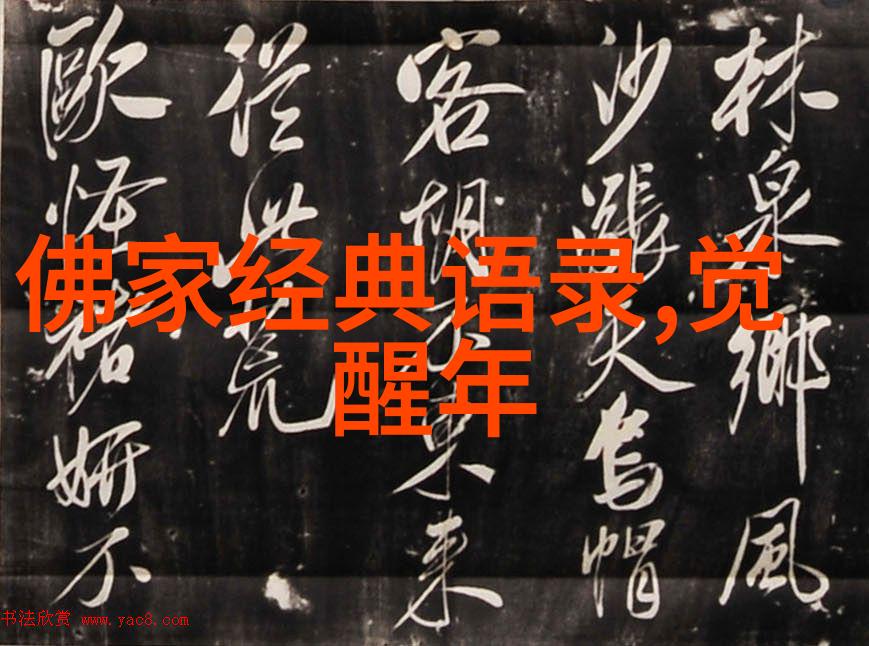 佛家经典语录,觉
醒年
林泉鄉風
沙漲大烏帽
客胡来
從荒
歐怪褚妍不
书法欣赏 www.yac8.com